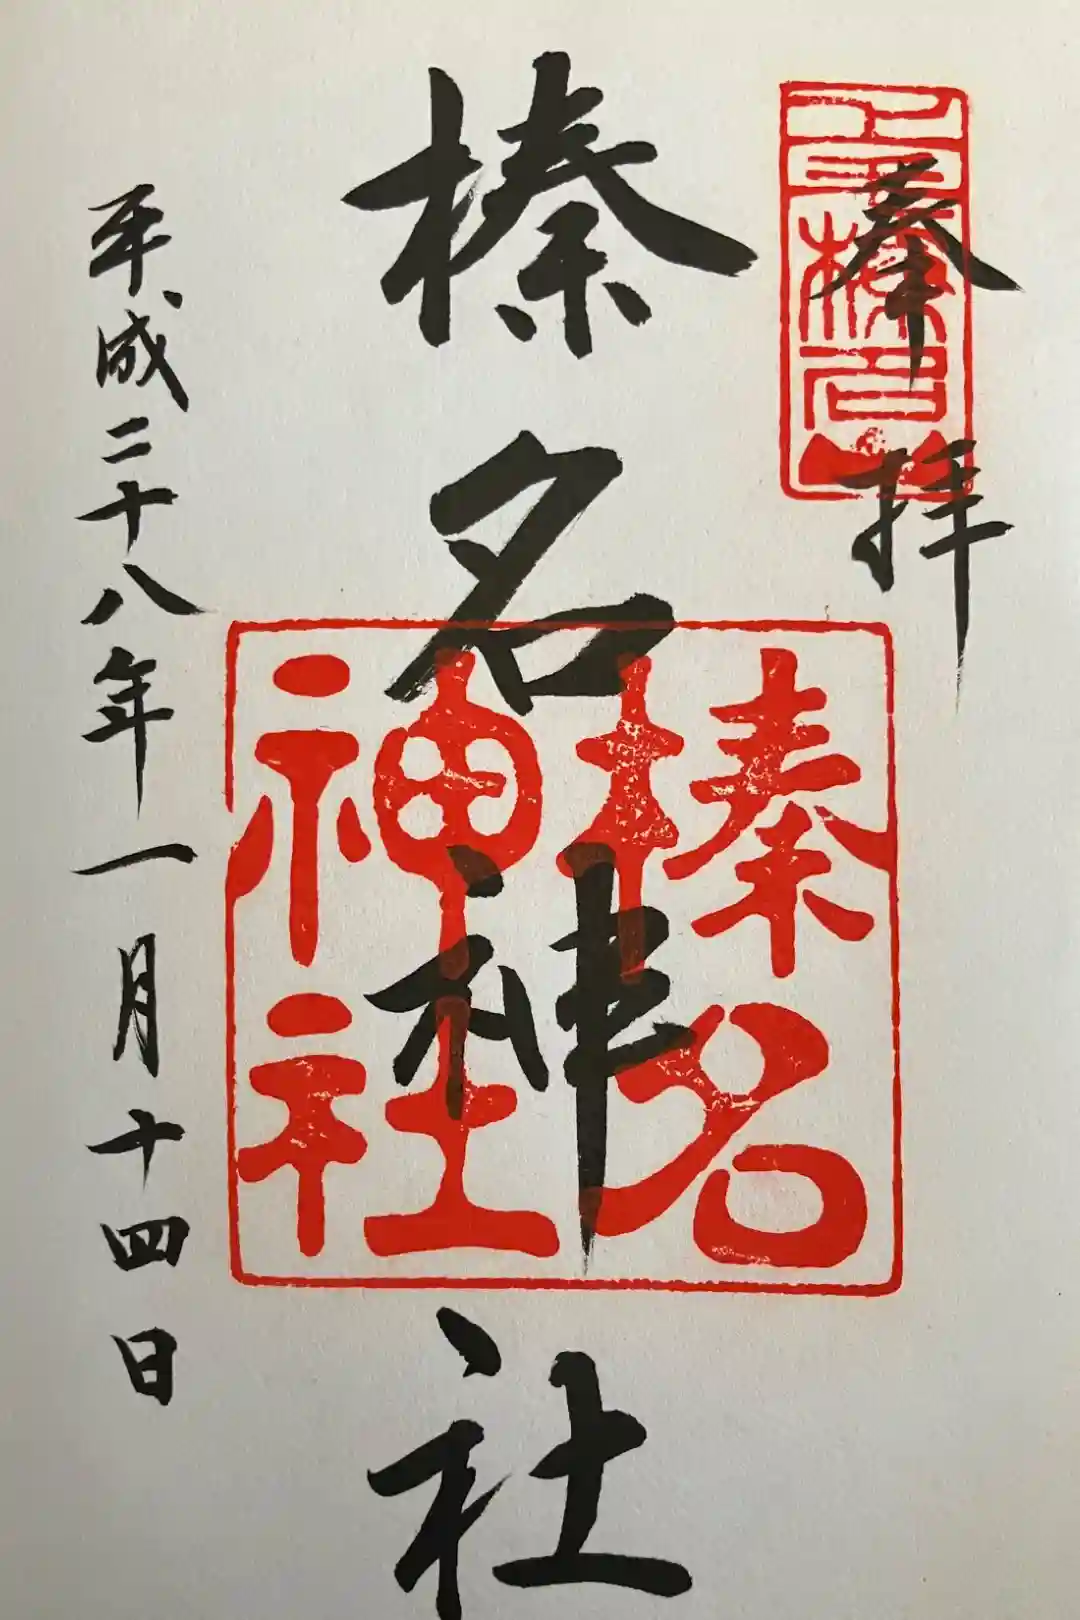 奉拝
上野榛名山
榛名神社
榛名神社
平成二十八年一月十四日